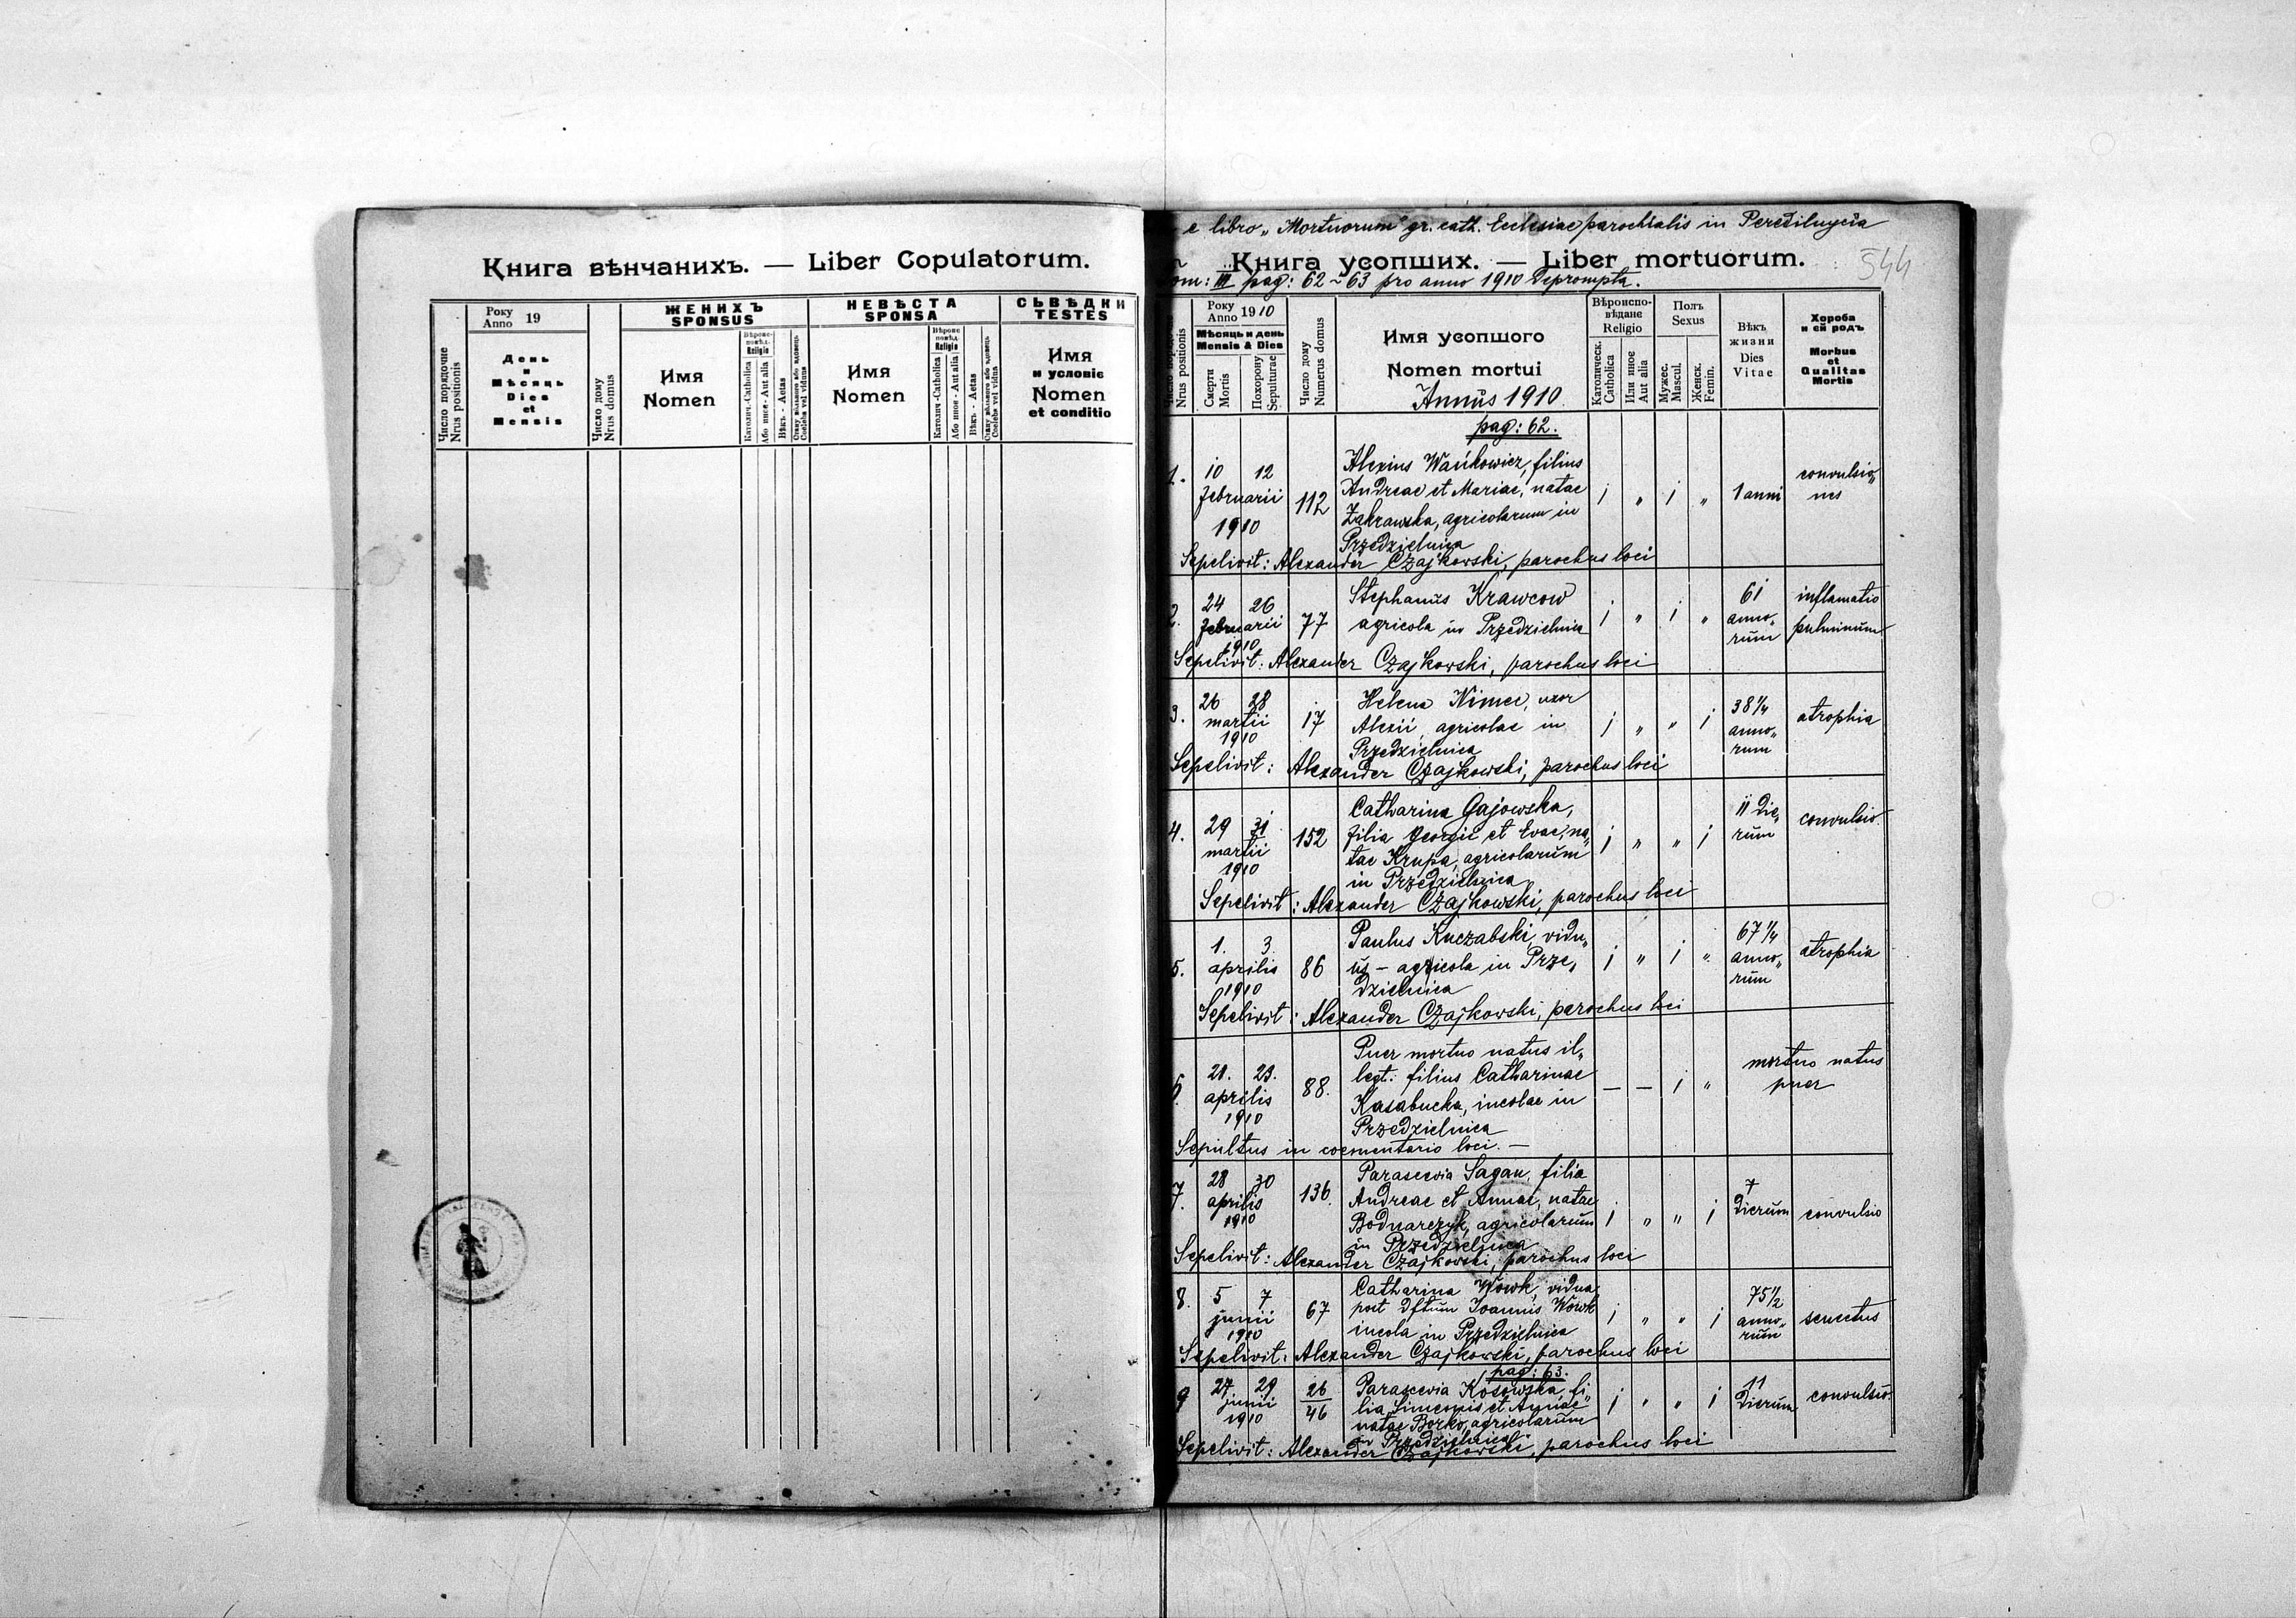 Книга вѣнчанихъ. — Liber Copulatorum.
Число порядочне
Nrus positionis
Року
Anno 19
День
и
Мѣсяць
Dies
et
Mensis
Число дому
Nrus domus
ЖЕНИХЪ
SPONSUS
Имя
Nomen
Вѣроис-
повѣд.
Religio
Католич.-Catholica
Або иное - Aut alia
Вѣкъ - Aetas
Стану вѣльного або вдовець
Coelebs vel viduus
НЕВѢСТА
SPONSA
Имя
Nomen
Вѣроис
повѣд.
Religio
Католич-Catholica
Або иное - Aut alia
Вѣкъ - Aetas
Стану вѣльного або вдова
Coelebs vel vidua
СЬВѢДКИ
TESTES
Имя
и условіє
Nomen
et conditio
e libro „Mortuorum" gr. cath. Ecclesiae parochialis in Peredilnycia
Книга усопших. — Liber mortuorum.
544
Tom: III pag: 62–63 pro anno 1910 deprompta.
Nrus positionis
Року
Anno 1910
Мѣсяць и день
Mensis & Dies
Смерти
Mortis
Похорону
Sepulturae
Число дому
Numerus domus
Имя усопшого
Nomen mortui
Annus 1910
Вѣроиспо-
вѣдане
Religio
Католическ.
Catholica
Или иное
Aut alia
Полъ
Sexus
Мужес.
Mascul.
Женск.
Femin.
Вѣкъ
жизни
Dies
Vitae
Хороба
и єй родъ
Morbus
et
Qualitas
Mortis
pag: 62.
1. 10 12 februarii 1910 112
Alexius Wańkowicz, filius
Andreae et Mariae, natae
Zakrawska, agricolarum in
Przedzielnica
1 „ 1 „ 1 anni convulsio„
nes
Sepelivit: Alexander Czajkowski, parochus loci
2. 24 26 februarii 1910 77
Stephanus Krawcow
agricola in Przedzielnica
1 „ 1 „ 61 anno„
rum
inflamatio
pulminum
Sepelivit: Alexander Czajkowski, parochus loci
3. 26 28 martii 1910 17
Helena Nimec, uxor
Alexii, agricolae in
Przedzielnica
1 „ „ 1 38 1/4 anno„
rum
atrophia
Sepelivit: Alexander Czajkowski, parochus loci
4. 29 31 martii 1910 152
Catharina Gajowska,
filia Georgii et Evae, na„
tae Krupa, agricolarum
in Przedzielnica
1 „ „ 1 11 die„
rum
convulsio
Sepelivit: Alexander Czajkowski, parochus loci
5. 1. 3. aprilis 1910 86
Paulus Kuczabski, vidu„
us – agricola in Prze„
dzielnica
1 „ 1 „ 67 1/4 anno„
rum
atrophia
Sepelivit: Alexander Czajkowski, parochus loci
6. 21. 23. aprilis 1910 88.
Puer mortuo natus il„
legt: filius Catharinae
Kasabucka, incolae in
Przedzielnica
— — 1 „ mortuo natus
puer
Sepultus in coementario loci. —
7. 28 30 aprilis 1910 136.
Parascevia Sagan, filia
Andreae et Annae, natae
Bodnarczyk, agricolarum
in Przedzielnica
1 „ „ 1 7 dierum convulsio
Sepelivit: Alexander Czajkowski, parochus loci
8. 5 7 junii 1910 67
Catharina Wowk, vidua
post dftum Joannis Wowk
incola in Przedzielnica
1 „ „ 1 75 1/2 anno„
rum
senectus
Sepelivit: Alexander Czajkowski, parochus loci
pag: 63.
9 27. 29 junii 1910 26/46
Parascevia Kosowska, fi„
lia Simeonis et Annae
natae Borko, agricolarum
in Przedzielnica
1 „ „ 1 11 dierum convulsio.
Sepelivit: Alexander Czajkowski, parochus loci